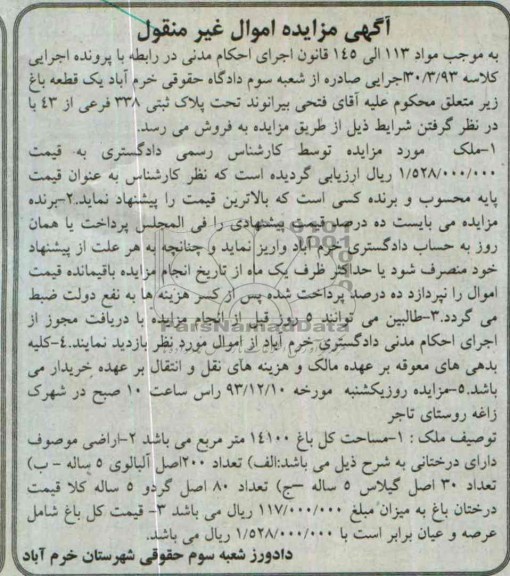 آگهی مزایده اموال غیر منقول
به موجب مواد ۱۱۳ الی ۱٤٥ قانون اجرای احکام مدنی در رابطه با پرونده اجرایی
کلاسه ۳۰/۳/۹۳اجرایی صادره از شعبه سوم دادگاه حقوقی خرم آباد یک قطعه باغ
زیر متعلق محکوم علیه آقای فتحی بیرانوند تحت پلاک ثبتی ۳۳۸ فرعی از ٤۳ با
در نظر گرفتن شرایط ذیل از طریق مزایده به فروش می رسد.
۱-ملک مورد مزایده توسط کارشناس رسمی دادگستری به قیمت
۱/٥۲۸/۰۰۰/۰۰۰ ریال ارزیابی گردیده است که نظر کارشناس به عنوان قیمت
پایه محسوب و برنده کسی است که بالاترین قیمت را پیشنهاد نماید.۲-برنده
مزایده می بایست ده درصد قیمت پیشنهادی را فی المجلس پرداخت یا همان
روز به حساب دادگستری خرم آباد واریز نماید و چنانچه به هر علت از پیشنهاد
خود منصرف شود یا حداکثر ظرف یک ماه از تاریخ انجام مزایده باقیمانده قیمت
اموال را نپردازد ده درصد پرداخت شده پس از کسر هزینه ها به نفع دولت ضبط
می گردد.۳-طالبین می توانند ٥ روز قبل از انجام مزایده با دریافت مجوز از
ParsNamadData
اجرای احکام مدنی دادگستری خرم آباد از اموال مورد نظر بازدید نمایند.٤-کلیه
بدهی های معوقه بر عهده مالک و هزینه های نقل و انتقال بر عهده خریدار می
باشد.٥-مزایده روزیکشنبه مورخه ۹۳/۱۲/۱۰ راس ساعت ۱۰ صبح در شهرک
زاغه روستای تاجر
توصیف ملک : ۱-مساحت کل باغ ۱٤۱۰۰ متر مربع می باشد ۲-اراضی موصوف
دارای درختانی به شرح ذیل می باشد:الف) تعداد ۲۰۰اصل آلبالوی ٥ ساله - ب)
تعداد ۳۰ اصل گیلاس ٥ ساله -ج) تعداد ۸۰ اصل گردو ٥ ساله کلا قیمت
درختان باغ به میزان مبلغ ۱۱۷/۰۰۰/۰۰۰ ریال می باشد ۳- قیمت کل باغ شامل
عرصه و عیان برابر است با ۱/٥۲۸/۰۰۰/۰۰۰ ریال می باشد.
دادورز شعبه سوم حقوقی شهرستان خرم آباد